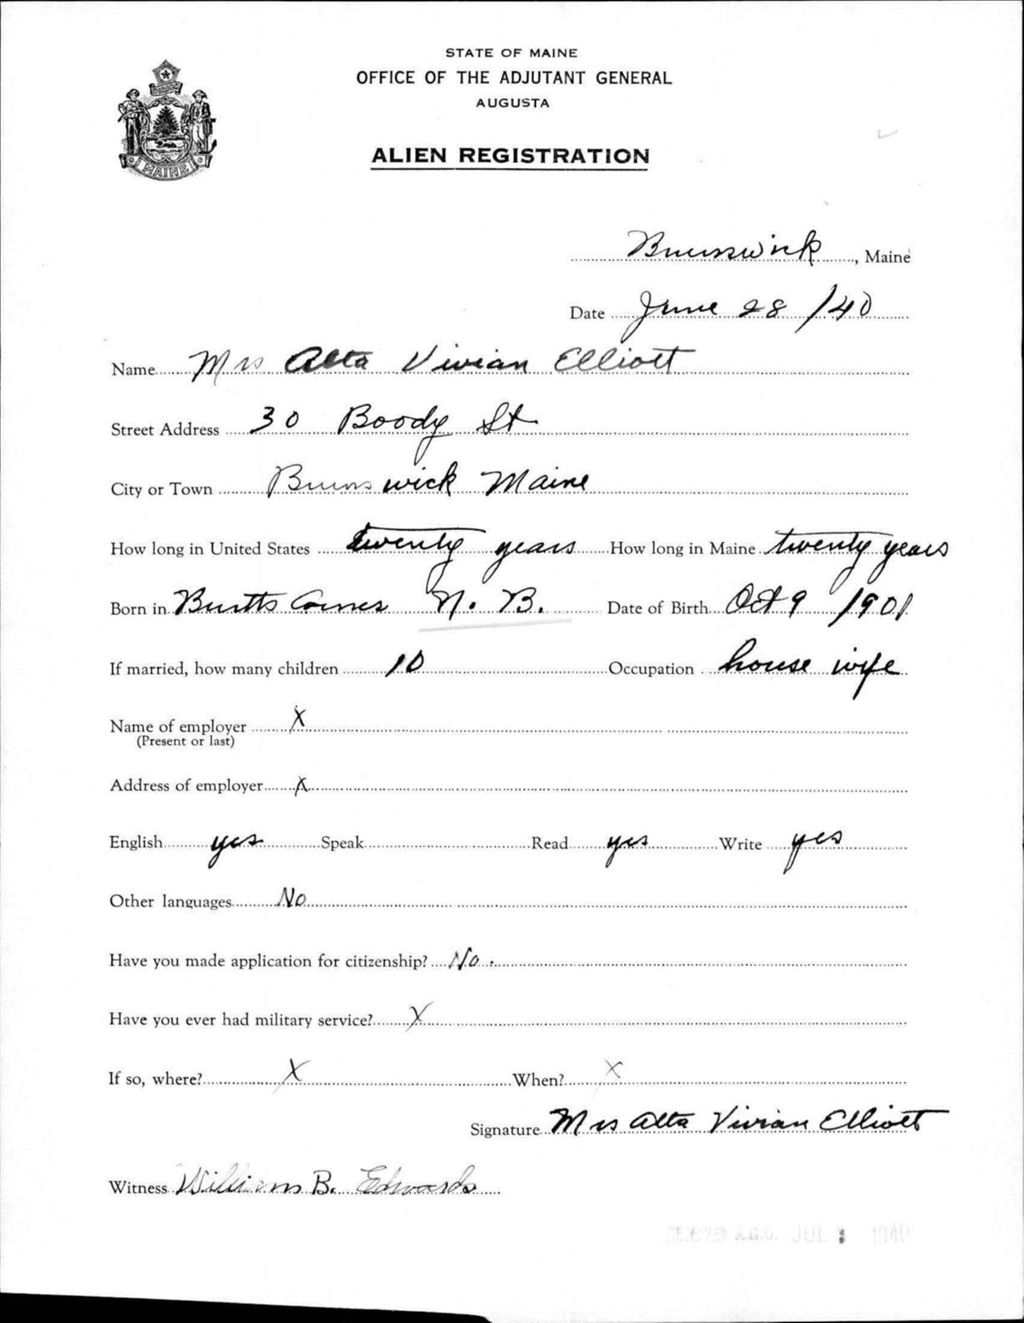 STATE OF MAINE
OFFICE OF THE ADJUTANT GENERAL
AUGUSTA
ALIEN REGISTRATION
MAINE
Brunswick, Maine
Date June 28 /40
Name Mrs Alta Vivian Elliott
Street Address 30 Boody St
City or Town Brunswick Maine
How long in United States twenty years How long in Maine twenty years
Born in Burtts Corner N. B. Date of Birth Oct 9 1901
If married, how many children 10 Occupation house wife
Name of employer X
(Present or last)
Address of employer X
English yes Speak Read yes Write yes
Other languages No
Have you made application for citizenship? No.
Have you ever had military service? X
If so, where? X When? X
Signature Mrs Alta Vivian Elliott
Witness William B. Edwards
RECEIVED A.G.O. JUL 1940